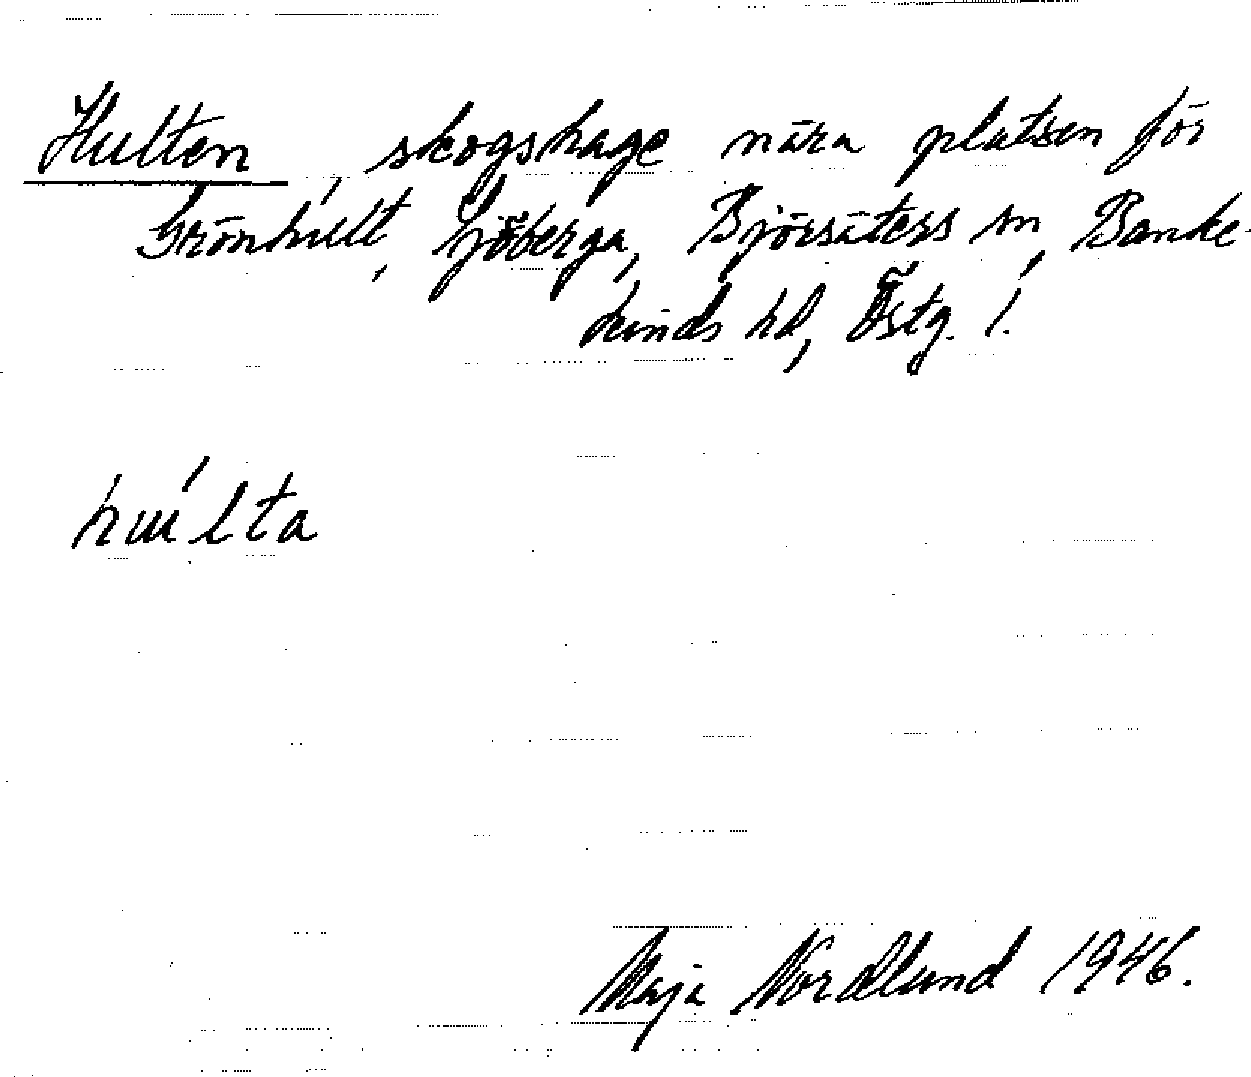 Hulten, skogshage nära platsen för
Grönhult, Sjöberga, Björsäters sn, Banke-
kinds hd, Östg. l.
hu̇́lta
Maja Nordlund 1946.